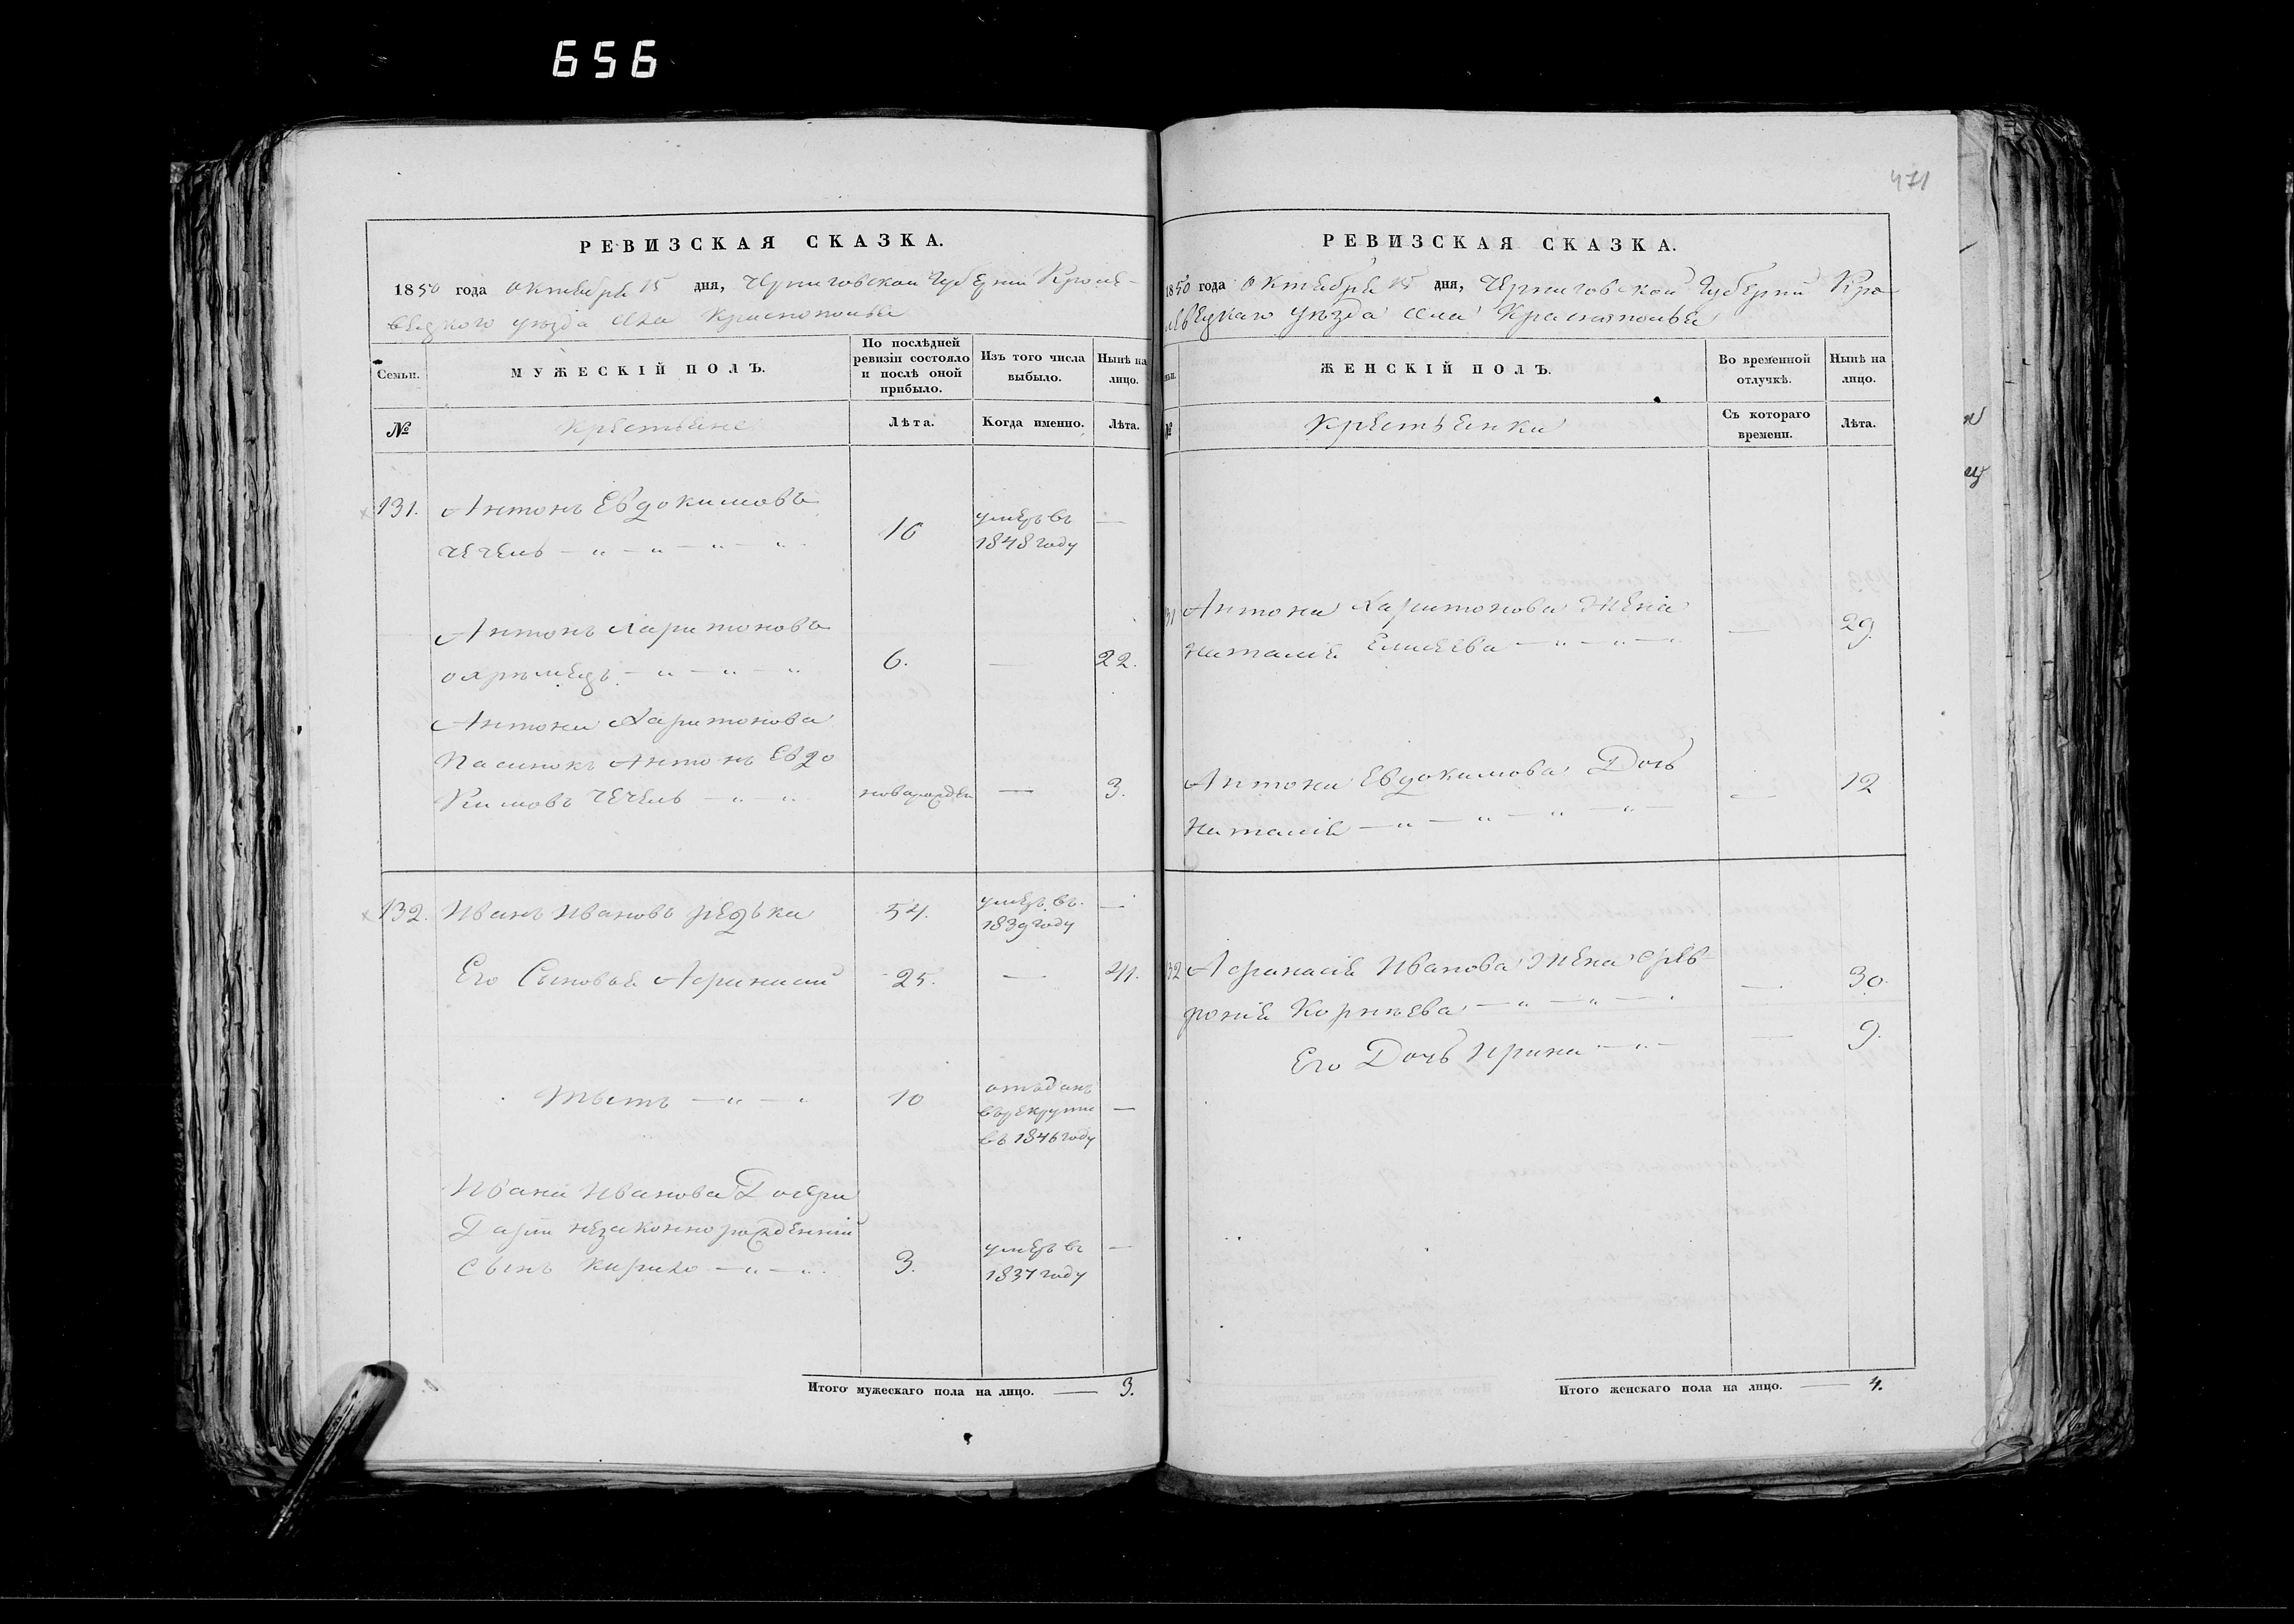 656
471
РЕВИЗСКАЯ СКАЗКА.
1850 года октября 15 дня, Черниговской губернии Кроле-
вецкого уезда села Краснополья
Семьи.
МУЖЕСКІЙ ПОЛЪ.
По послѣдней ревизіи состояло и послѣ оной прибыло.
Изъ того числа выбыло.
Нынѣ на лицо.
№
Крестьяне
Лѣта.
Когда именно.
Лѣта.
131. Антонъ Евдокимовъ
Чечель — " — " — " — " 16 умеръ въ 1848 году —
Антонъ Харитоновъ
— " — " — " 6. — 22.
Антона Харитонова
Пасинокъ Антонъ Евдо
кимовъ Чечель — " — " новорожден — 3.
132. Иванъ Ивановъ Редька 54. умеръ въ 1839 году —
Его Сыновья Афанасій 25. — 41.
— " — " 10 отъдан въ рекруты въ 1846 году —
Ивана Иванова Дочери
Даріи незаконнорожденній
Сынъ Кирило — " — " 3. умеръ въ 1837 году —
Итого мужескаго пола на лицо. — 3.
РЕВИЗСКАЯ СКАЗКА.
1850 года октября 15 дня, Черниговской губерніи Кро
левецкаго уѣзда села Краснополья
№
ЖЕНСКІЙ ПОЛЪ.
Во временной отлучкѣ.
Нынѣ на лицо.
Крестьянки
Съ котораго времени.
Лѣта.
31 Антона Харитонова Жена
Наталія Елисѣева — " — " — " — 29.
Антона Евдокимова Дочь
Наталія — " — " — " — " — — 12
32 Афанасія Иванова Жена Фев-
ронія Корнѣева — " — " — . — 30.
Его Дочь Ирина — " — — 9.
Итого женскаго пола на лицо. — 4.